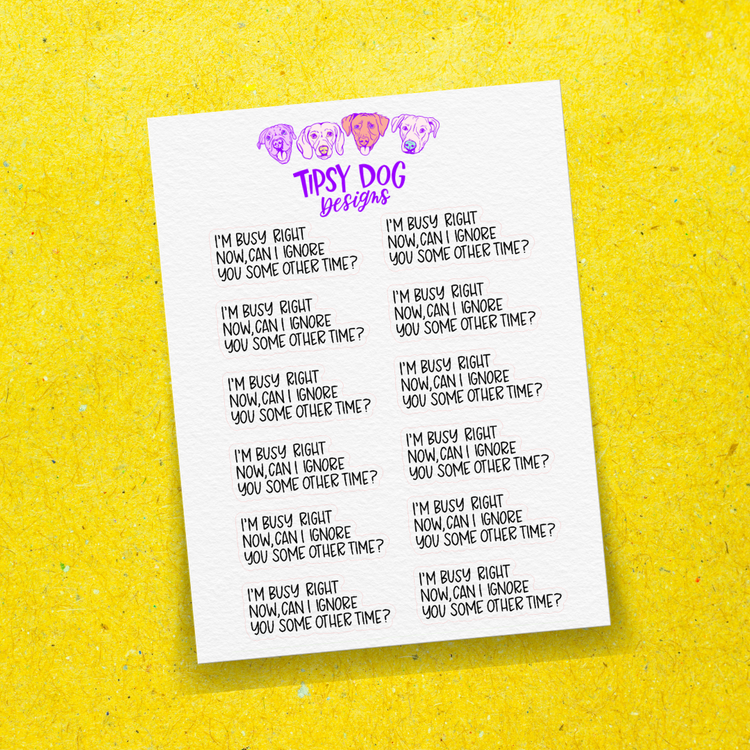 TIPSY DOG
Designs
I'M BUSY RIGHT
NOW,CAN I IGNORE
YOU SOME OTHER TIME?
I'M BUSY RIGHT
NOW,CAN I IGNORE
YOU SOME OTHER TIME?
I'M BUSY RIGHT
NOW,CAN I IGNORE
YOU SOME OTHER TIME?
I'M BUSY RIGHT
NOW,CAN I IGNORE
YOU SOME OTHER TIME?
I'M BUSY RIGHT
NOW,CAN I IGNORE
YOU SOME OTHER TIME?
I'M BUSY RIGHT
NOW,CAN I IGNORE
YOU SOME OTHER TIME?
I'M BUSY RIGHT
NOW,CAN I IGNORE
YOU SOME OTHER TIME?
I'M BUSY RIGHT
NOW,CAN I IGNORE
YOU SOME OTHER TIME?
I'M BUSY RIGHT
NOW,CAN I IGNORE
YOU SOME OTHER TIME?
I'M BUSY RIGHT
NOW,CAN I IGNORE
YOU SOME OTHER TIME?
I'M BUSY RIGHT
NOW,CAN I IGNORE
YOU SOME OTHER TIME?
I'M BUSY RIGHT
NOW,CAN I IGNORE
YOU SOME OTHER TIME?